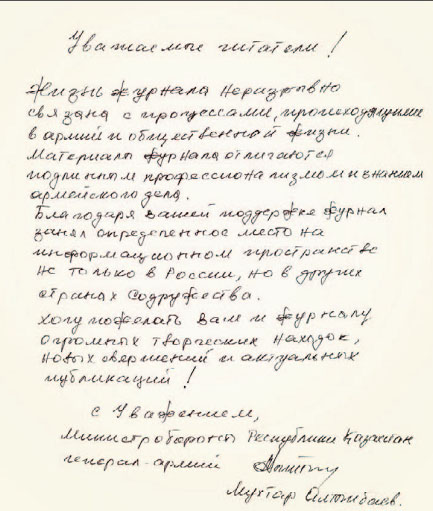 Уважаемые читатели!
Жизнь журнала неразрывно
связана с процессами, происходящими
в армии и общественной жизни.
Материалы журнала отличаются
подлинным профессионализмом и знанием
армейского дела.
Благодаря вашей поддержке журнал
занял определенное место на
информационном пространстве
не только в России, но в других
странах Содружества.
Хочу пожелать Вам и журналу
огромных творческих находок,
новых свершений и актуальных
публикаций!
с Уважением,
Министр обороны Республики Казахстан
генерал-армии
Мухтар Алтынбаев.